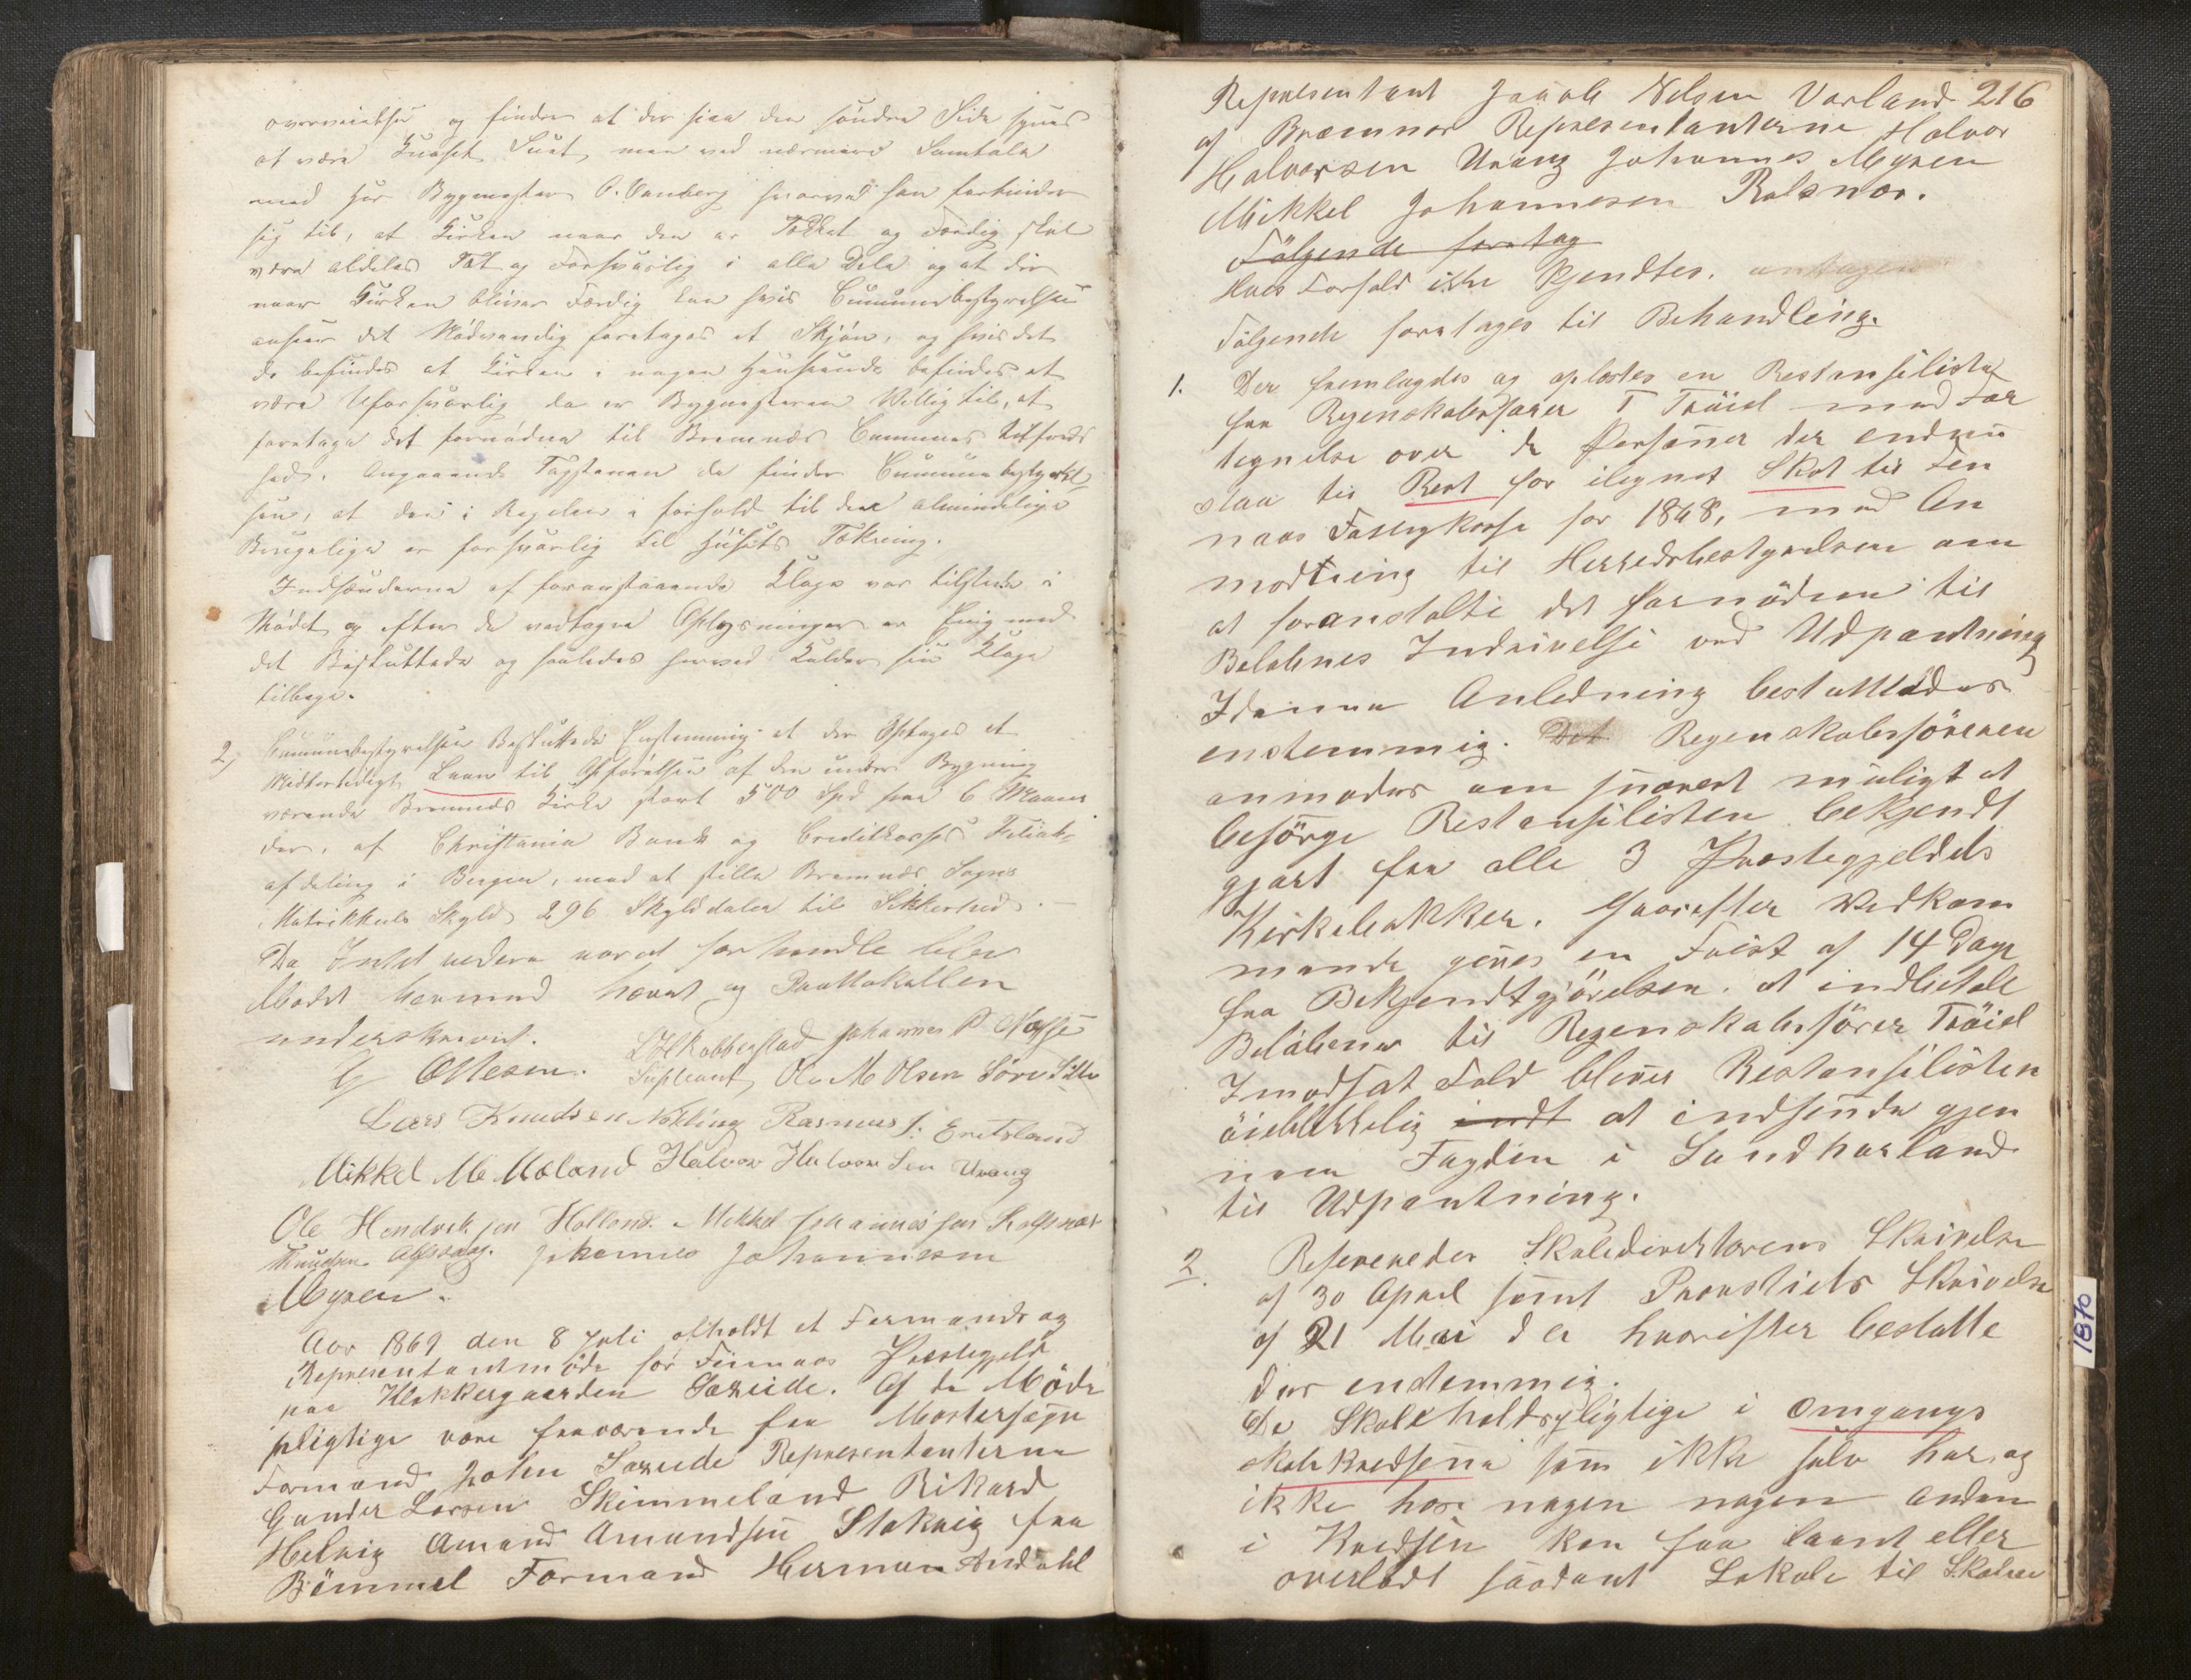 overveielse og finder at der paa den søndre Side synes
at være Huaset Luat, men ved nærmere Samtale
med Hør Bygmester O. Vanberg hvorved han forbinder
sig til, at Kirken naar den er Tækket og Færdig skal
være aldeles Tæt og Forsvarlig i alle Dele og at der
naar Kirken bliver Færdig kan hvis Cumunebestyrelsen
anseer det Nødvendig foretages et Skjøn, og hvis det
da befindes at Kirken i nogen Henseende befindes at
være Uforsvarlig da er Bygmesteren Willig til, at
foretage det fornødne til Bremnæs Cummunes tilfreds
hed. Angaaende Tagstenen da finder Cumunebestyrel
sen, at den i Regelen i forhold til den almindelige
Brugelige er forsvarlig til Husets Tækning.
Indsænderne af foranstaaende Klage var tilstede i
Mødet og efter de vedtagne Oplysninger er Enig med
det Besluttede og saaledes herved kalder sin Klage
tilbage.
2) Cumunebestyrelsen Besluttede Enstemmig at der Optages et
Midlertidigt Laan til Opførelsen af den under Bygning
værende Bremnæs Kirke stort 500 Spd paa 6 Maane
der, af Christiania Bank og Creditkasses Filial-
afdeling i Bergen, med at stille Bremnæs Sogns
Matrikkuls Skyld 296 Skylddaler til Sikkerhed. —
Da Intet videre var at forhandle blev
Mødet hermed hævet og Prottokollen
underskrevet.
G Ottesen. LHKobberstad Johannes P Næsse
Supleant, Ole M Olsen Søre Lille
Lars Knudsen Nøkling Rasmus J. Eritsland
Mikkel M Mæland Halvor Halvorsen Urang
Ole Hendriksen Holland. Mikkel Johannesen Rolfsnæs
Knudsen Alfsvaag. Johannes Johannesen
Myren.
Aar 1869 den 8 Juli afholdt et Formands og
Representantmøde for Finnaas Præstegjeld
paa Klokkergaarden Særeide. Af de Møde
pligtige vare fraværende fra Mostersogn
Formand John Særeide Representanterne
Gunder Larsen Skimmeland Rikard
Helvig Amund Amundsen Stokvig fra
Bømmel Formand Herman Andahl
Representant Jacob Nelsen Vorland 216
af Bræmnes Representanterne Halvor
Halvorsen Urang Johannes Myren
Mikkel Johannesen Rolsnæs.
Følgende foretag
Hvis Forfald ikke Kjendtes. antagen
Følgende foretages til Behandling.
1. Der fremlagdes og oplæstes en Restanseliste
fra Regenskabsfører T Trøiel med For
tegnelse over de Personer der endnu
staa til Rest for ilignet Skat til Fin
naas Fattigkasse for 1868, med An
modtning til Herredsbestyrelsen om
at foranstalte det fornødne til
Beløbenes Inddrivelse ved Udpantning
I denne Anledning besluttedes
enstemmig. Det Regenskabsføreren
anmodes om snarest muligt at
besørge Restanselisten bekjendt
gjort fra alle 3 Præstegjeldets
Kirkebakker. Hvorefter Vedkom
mende gives en Frist af 14 Dage
fra Bekjendtgjørelsen, at indbetale
Beløbene til Regenskabsfører Trøiel
I modsat Fald bliver Restanselisten
øieblikkelig indt at indsende gjen
nem Fogden i Sundhorland
til Udpantning.
2. Refereredes Skoledirektørens Skrivelse
af 30 April samt Provstiets Skrivelse
af 21 Mai d a hvorefter beslutte
des enstemmig.
De Skoleholdspligtige i Omgangs
skolekredsene som ikke selv har og
ikke hos nogen nogen anden
i Kredsen kan faa laant eller
overladt saadant Lokale til Skolen
1870